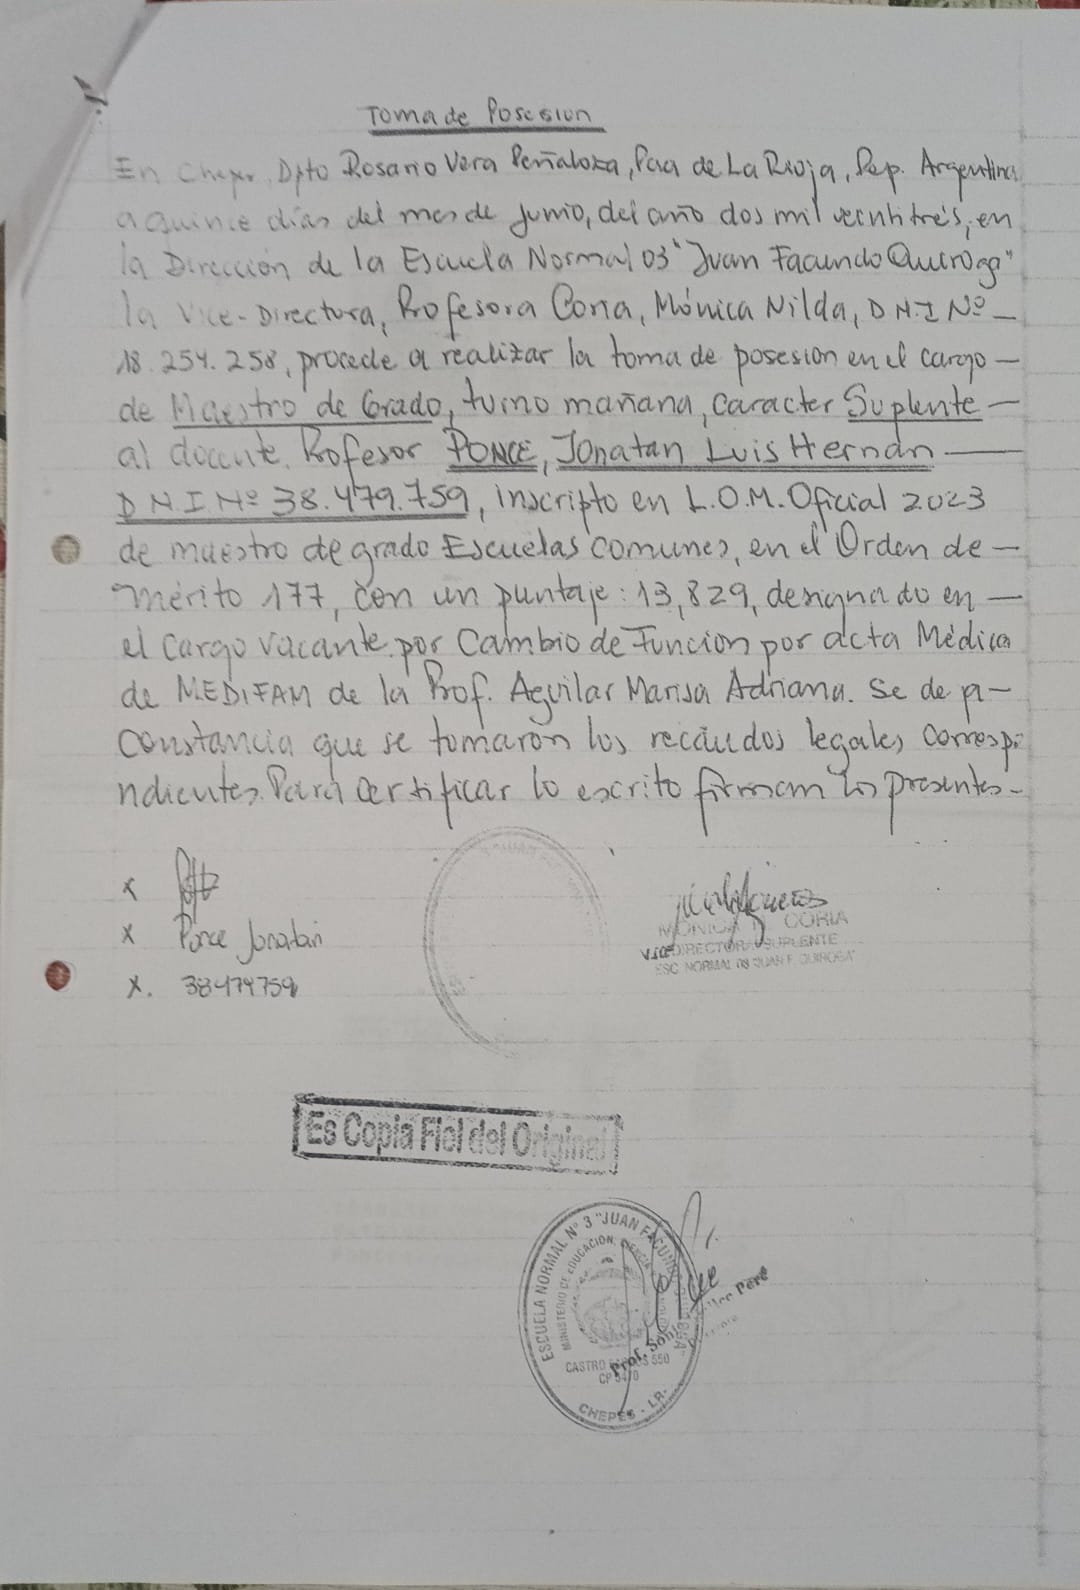 Toma de Posesion
En Chepes, Dpto Rosario Vera Peñaloza, Pcia de La Rioja, Rep. Argentina
a quince días del mes de Junio, del año dos mil veintitrés, en
la Dirección de la Escuela Normal 03 "Juan Facundo Quiroga"
la Vice-Directora, Profesora Coria, Mónica Nilda, D.N.I Nº —
18.254.258, procede a realizar la toma de posesion en el cargo —
de Maestro de Grado, turno mañana, caracter Suplente —
al docente, Profesor PONCE, Jonatan Luis Hernán —
D.N.I Nº 38.479.759, inscripto en L.O.M. Oficial 2023
de maestro de grado Escuelas comunes, en el Orden de —
mérito 177, con un puntaje: 13,829, designado en —
el cargo vacante por Cambio de Función por acta Médica
de MEDIFAM de la Prof. Aguilar Marisa Adriana. Se deja —
constancia que se tomaron los recaudos legales correspo
ndientes. Para certificar lo escrito firman los presentes -
x
x Ponce Jonatan
x. 38479759
MÓNICA CORIA
VICEDIRECTORA SUPLENTE
ESC. NORMAL 03 "JUAN F. QUIROGA"
Es Copia Fiel del Original
ESCUELA NORMAL Nº 3 "JUAN FACUNDO QUIROGA"
MINISTERIO DE EDUCACION, CIENCIA
CASTRO 550
CP 5470
CHEPES - LR-
Prof. Pere